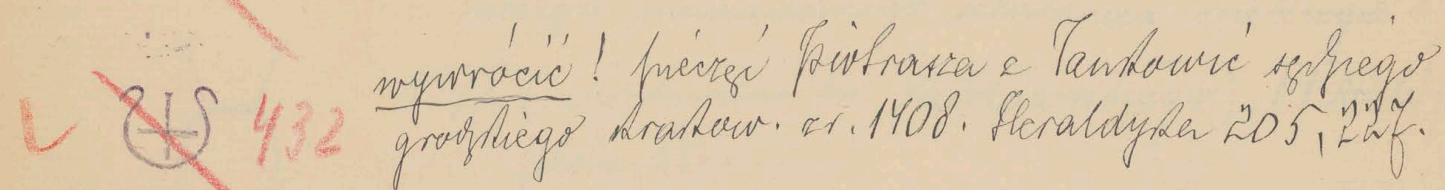 wywrócić! pieczęć Piotrasza z Jankowic sędziego
432 grodzkiego krakow. z r. 1408. Heraldyka 205, 227.